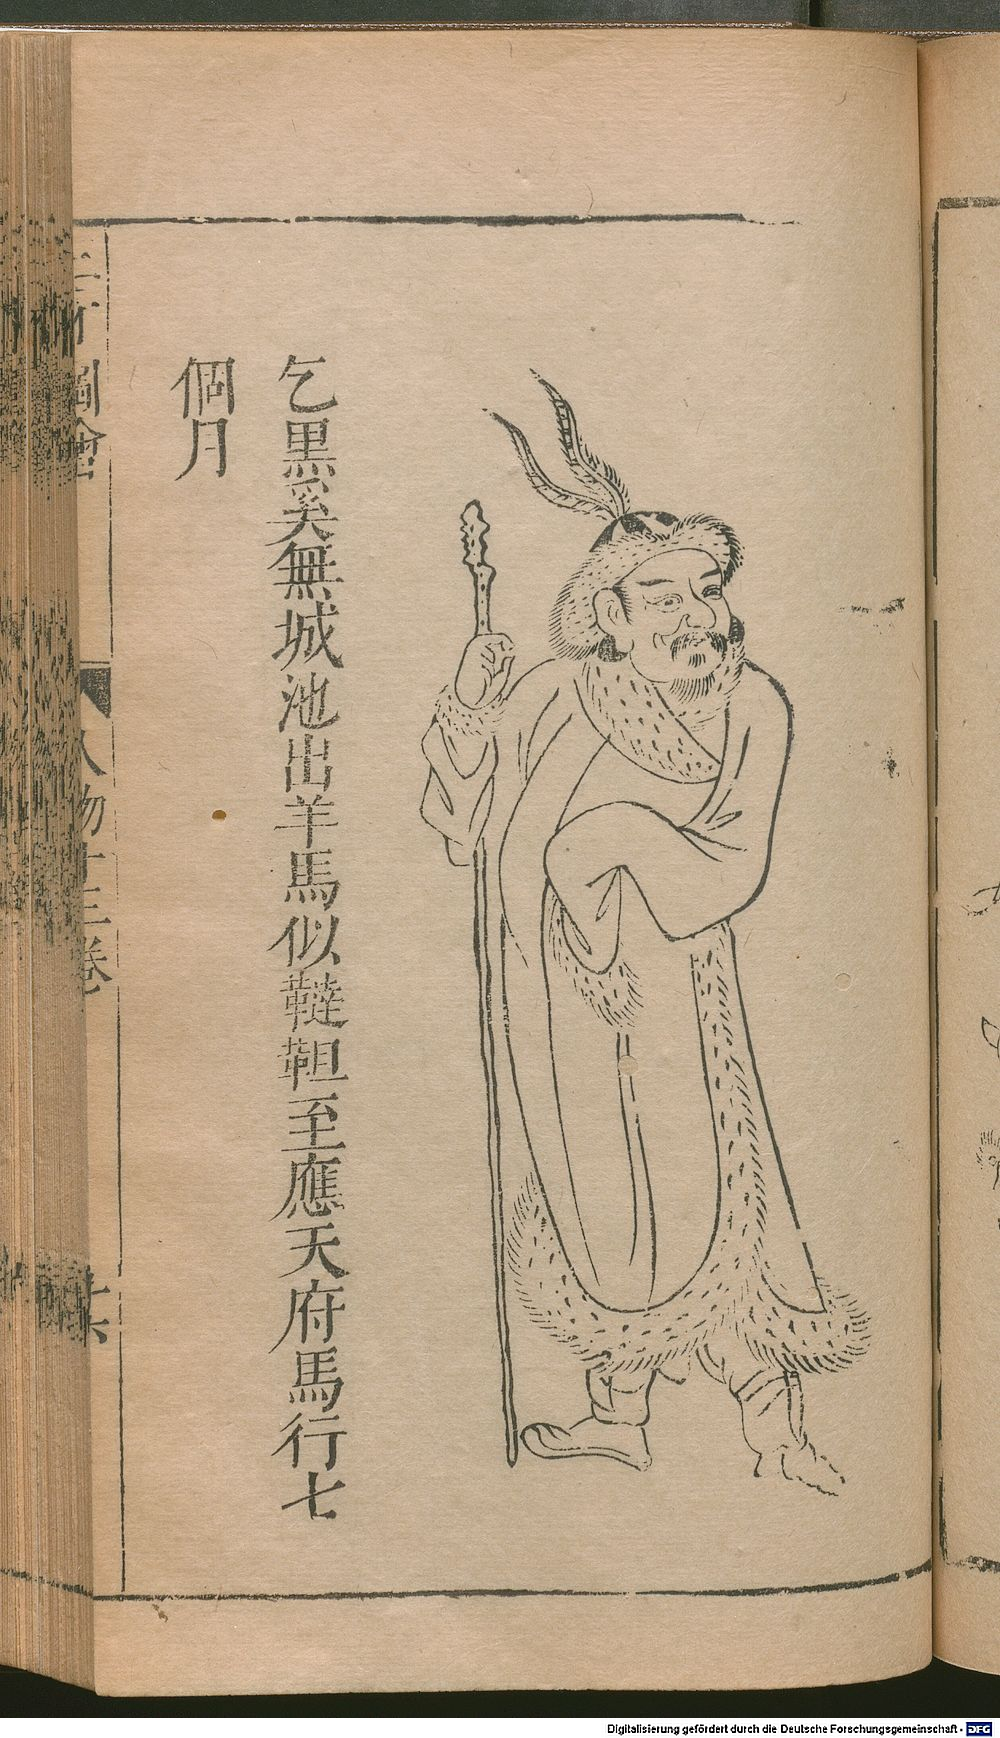 乞黑奚無城池出羊馬似韃靼至應天府馬行七
個月
圖會
人物十三卷
Digitalisierung gefördert durch die Deutsche Forschungsgemeinschaft - DFG